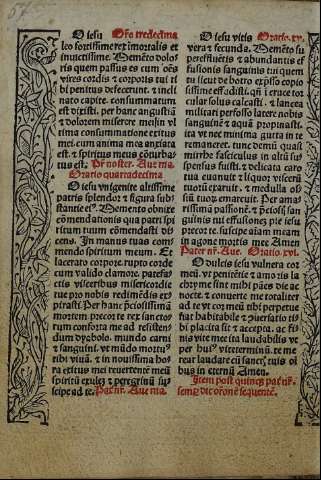 O iesu Oro tredecima
leo fortissime rex imortalis et
inuictissime. Memēto dolo
ris quem passus es cum oēs
vires cordis & corporis tui ti
bi penitus defecerunt. & incli
nato capite. consummatum
est dixisti. per hanc angustiā
& dolorem miserere mei in vl
tima consummatione exitus
mei. cum anima mea anxiata
est. & spiritus meus cōturba
tus est. Pr noster. Aue ma.
Oratio quartadecima
O iesu vnigenite altissime
patris splendor & figura sub
stantie ei9. Memento obnixe
cōmendationis qua patri spi
ritum tuum cōmendasti di
cens. In manus tuas com
mendo spiritum meum. Et
lacerato corpore. rupto corde
cum valido clamore. patefa
ctis visceribus misericordie
tue pro nobis redimēdis ex
pirasti. Per hanc preciosissimā
mortem. precor te rex sancto
rum conforta me ad resistend
dum dyabolo. mundo carni
& sanguini. vt mūdo mortu9
tibi viuā. & in nouissima ho
ra exitus mei reuertentē meū
spiritū exulē & peregrinū su
scipe ad te. Pat nr. Aue ma.
O iesu vitis Oratio. xv.
vera & fecunda. Memēto su
pereffluētis & abundantis ef
fusionis sanguinis tui quem
tu sicut de botro expsso copio
sime effudisti. qn̄ i cruce tor
cular solus calcasti. & lancea
militari perfosso latere nobis
sanguinē & aquā propinasti.
ita vt nec minima gutta in te
remaneret. tunc demū quasi
mirrhe fasciculus in altū su
spensus fuisti. & delicata caro
tua euanuit. & liquor viscerū
tuorū exaruit. & medulla os
siū tuor emarcuit. Per ama
rissimā passionē. & p̄ciosi san
guinis tui effusionē pie iesu
precor te. suscipe aīam meam
in agone mortis mee Amen
Pater nr. Aue. Oratio. xvi.
O dulcis iesu vulnera cor
meū. vt penitētie & amoris la
chryme sint mihi pāes die ac
nocte. & conuerte me totaliter
ad te vt cor meū tibi perpetue
fiat habitabile & p̄uersatio ti
bi placita sit & accepta. ac fi
nis vite mee ita laudabilis vt
per hui9 vite terminū. te me
rear laudare cū sanct; tuis oī
bus in eternū Amen.
Item post quinq; pat nr.
semp dic orōnē sequentē.